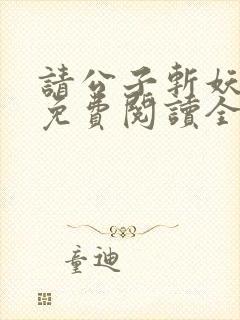 請公子斬妖
免費閱讀全
童迪